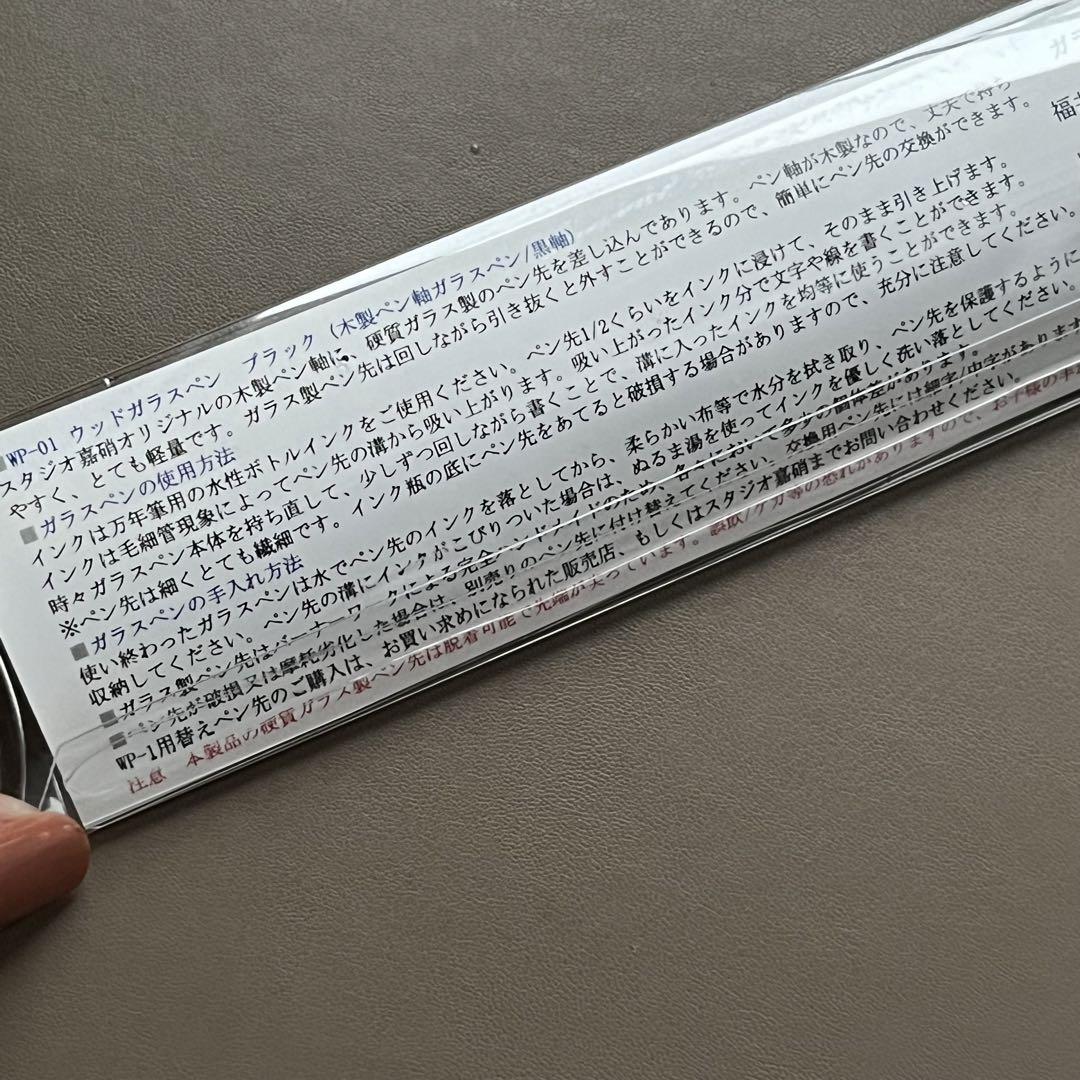 ■WP-01 ウッドガラスペン ブラック (木製ペン軸ガラスペン/黒軸)
スタジオ嘉硝オリジナルの木製ペン軸に、硬質ガラス製のペン先を差し込んであります。ペン軸が木製なので、丈夫で持ち
やすく、とても軽量です。ガラス製ペン先は回しながら引き抜くと外すことができるので、簡単にペン先の交換ができます。
■ガラスペンの使用方法
インクは万年筆用の水性ボトルインクをご使用ください。ペン先1/2くらいをインクに浸けて、そのまま引き上げます。
インクは毛細管現象によってペン先の溝から吸い上がります。吸い上がったインク分で文字や線を書くことができます。
時々ガラスペン本体を持ち直して、少しずつ回しながら書くことで、溝に入ったインクを均等に使うことができます。
※ペン先は細くとても繊細です。インク瓶の底にペン先をあてると破損する場合がありますので、充分に注意してください。
■ガラスペンの手入れ方法
使い終わったガラスペンは水でペン先のインクを落としてから、柔らかい布等で水分を拭き取り、ペン先を保護するように
収納してください。ペン先の溝にインクがこびりついた場合は、ぬるま湯を使ってインクを優しく洗い落としてください。
■ガラス製ペン先はバーナーワークによる完全ハンドメイドのため、各々において多少の個体差があります。
■ペン先が破損又は摩耗劣化した場合は、別売りのペン先に付け替えてください。交換用ペン先には細字/中字があります
WP-1用替えペン先のご購入は、お買い求めになられた販売店、もしくはスタジオ嘉硝までお問い合わせください。
注意 本製品の硬質ガラス製ペン先は脱着可能で先端が尖っています。誤飲/ケガ等の恐れがありますので、お子様の手
ガラ
福井